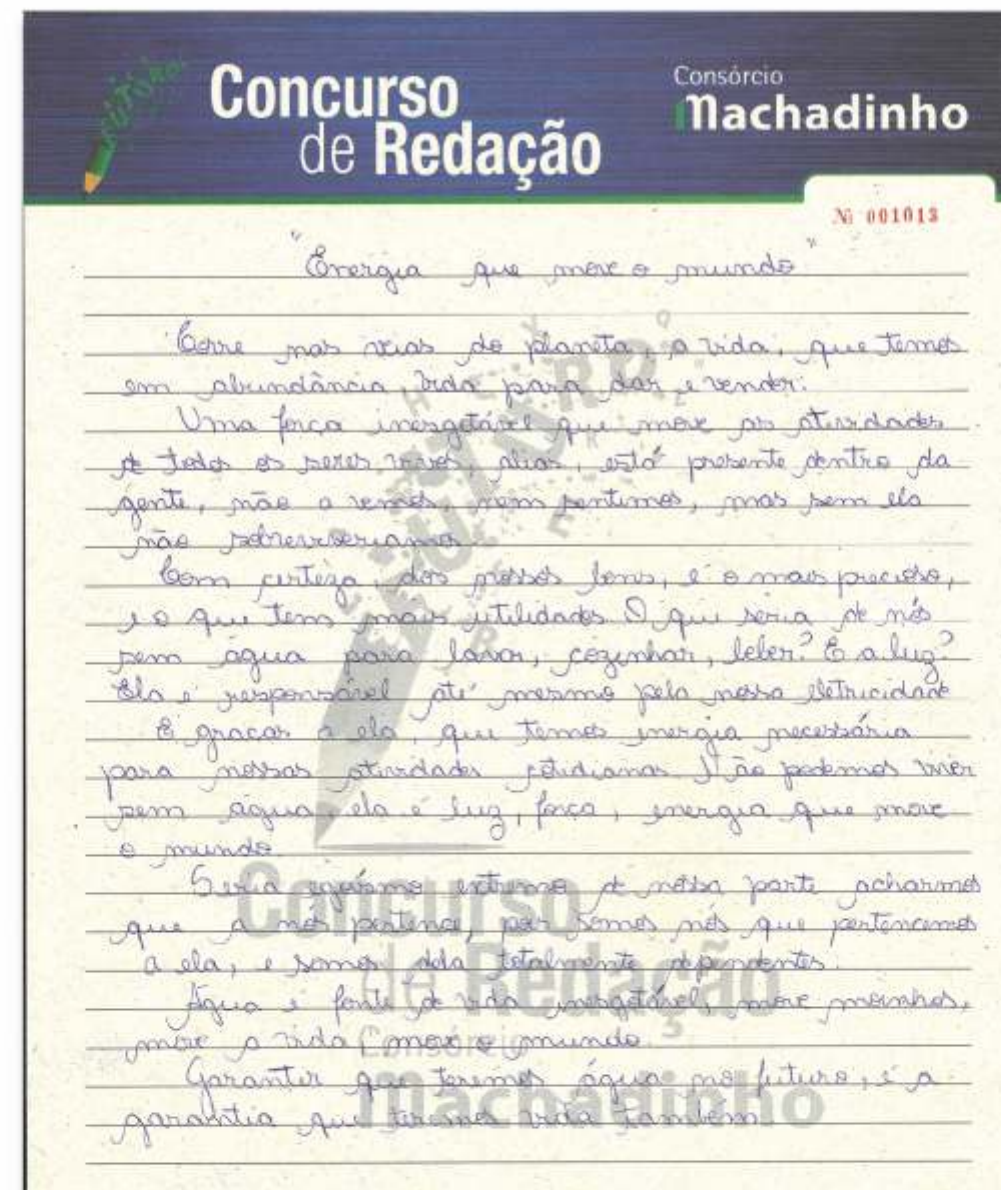 FUTURO
Concurso
de Redação
Consórcio
Machadinho
Nº 001013
"Energia que move o mundo"
Corre nas veias do planeta, a vida, que temos
em abundância, vida para dar e vender.
Uma força inesgotável que move as atividades
de todos os seres vivos, alias, está presente dentro da
gente, não a vemos, nem sentimos, mas sem ela
não sobreviveriamos.
Com certeza, dos nossos bens, é o mais precioso,
e o que tem mais utilidades. O que seria de nós
sem água para lavar, cozinhar, beber? E a luz?
Ela é responsável até mesmo pela nossa eletricidade
É graças a ela, que temos energia necessária
para nossas atividades cotidianas. Não podemos viver
sem água, ela é luz, força, energia que move
o mundo.
Seria egoísmo extremo de nossa parte acharmos
que a nós pertence, pois somos nós que pertencemos
a ela, e somos dela totalmente dependentes.
Água é fonte de vida inesgotável, move moinhos,
move a vida, move o mundo.
Garantir que teremos água no futuro, é a
garantia que teremos vida também
FUTURO
Concurso
de Redação
Consórcio
Machadinho